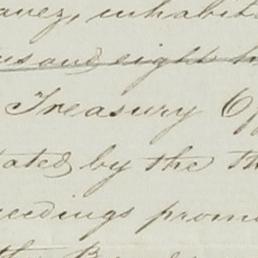 avez, inhabit
us and eight h
Treasury Of
tated by the th
eedings prom